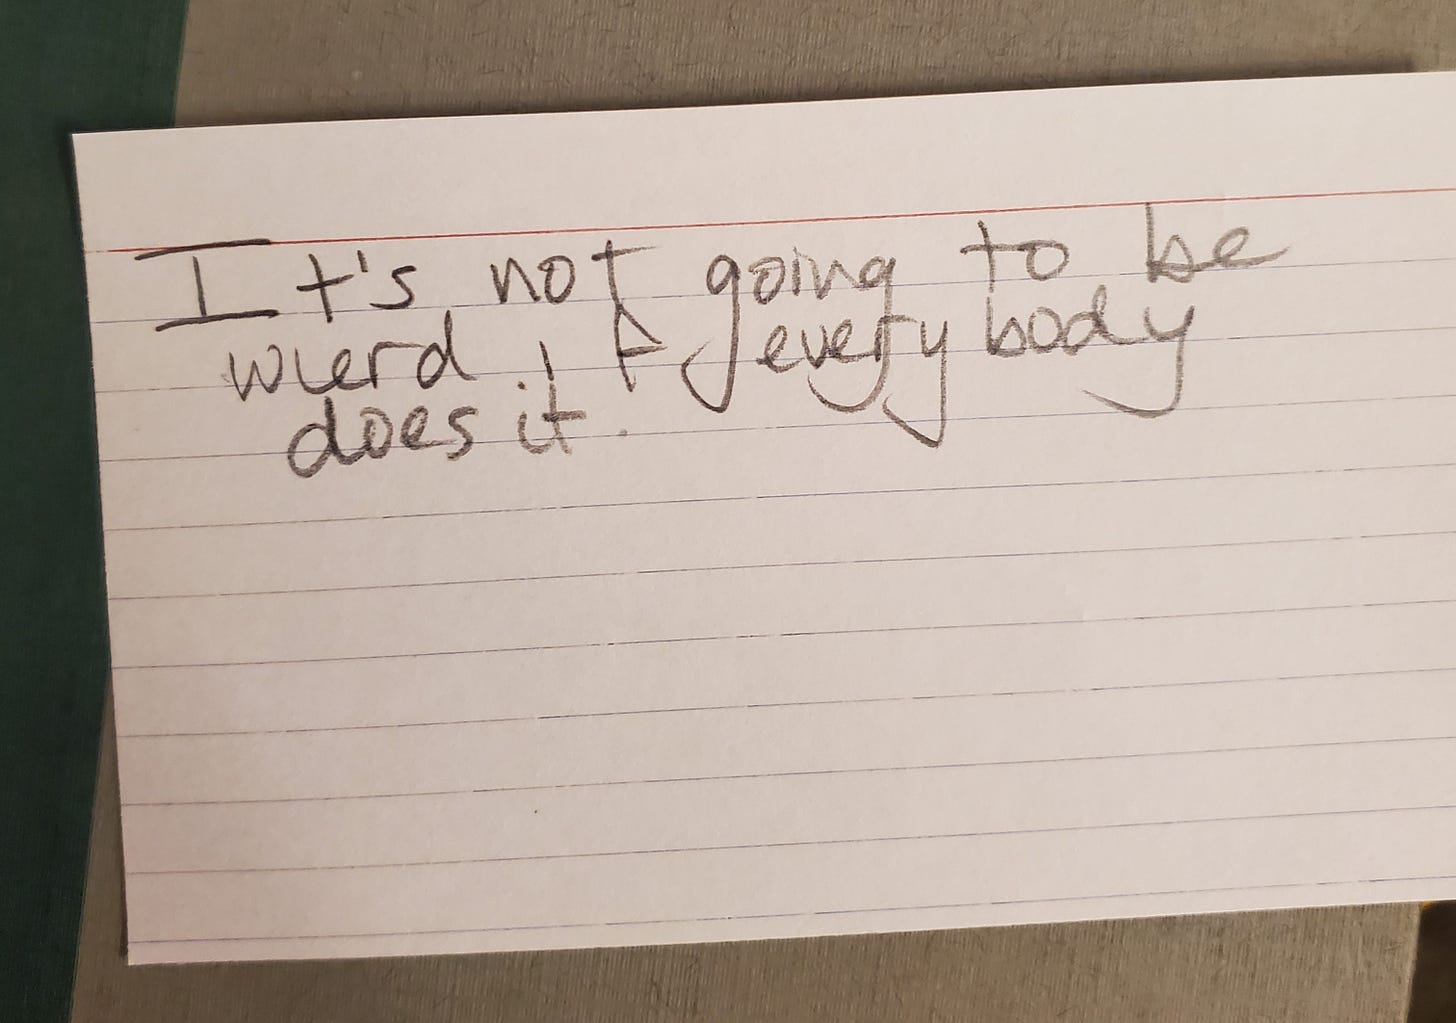 It's not going to be
wierd if everybody
does it.